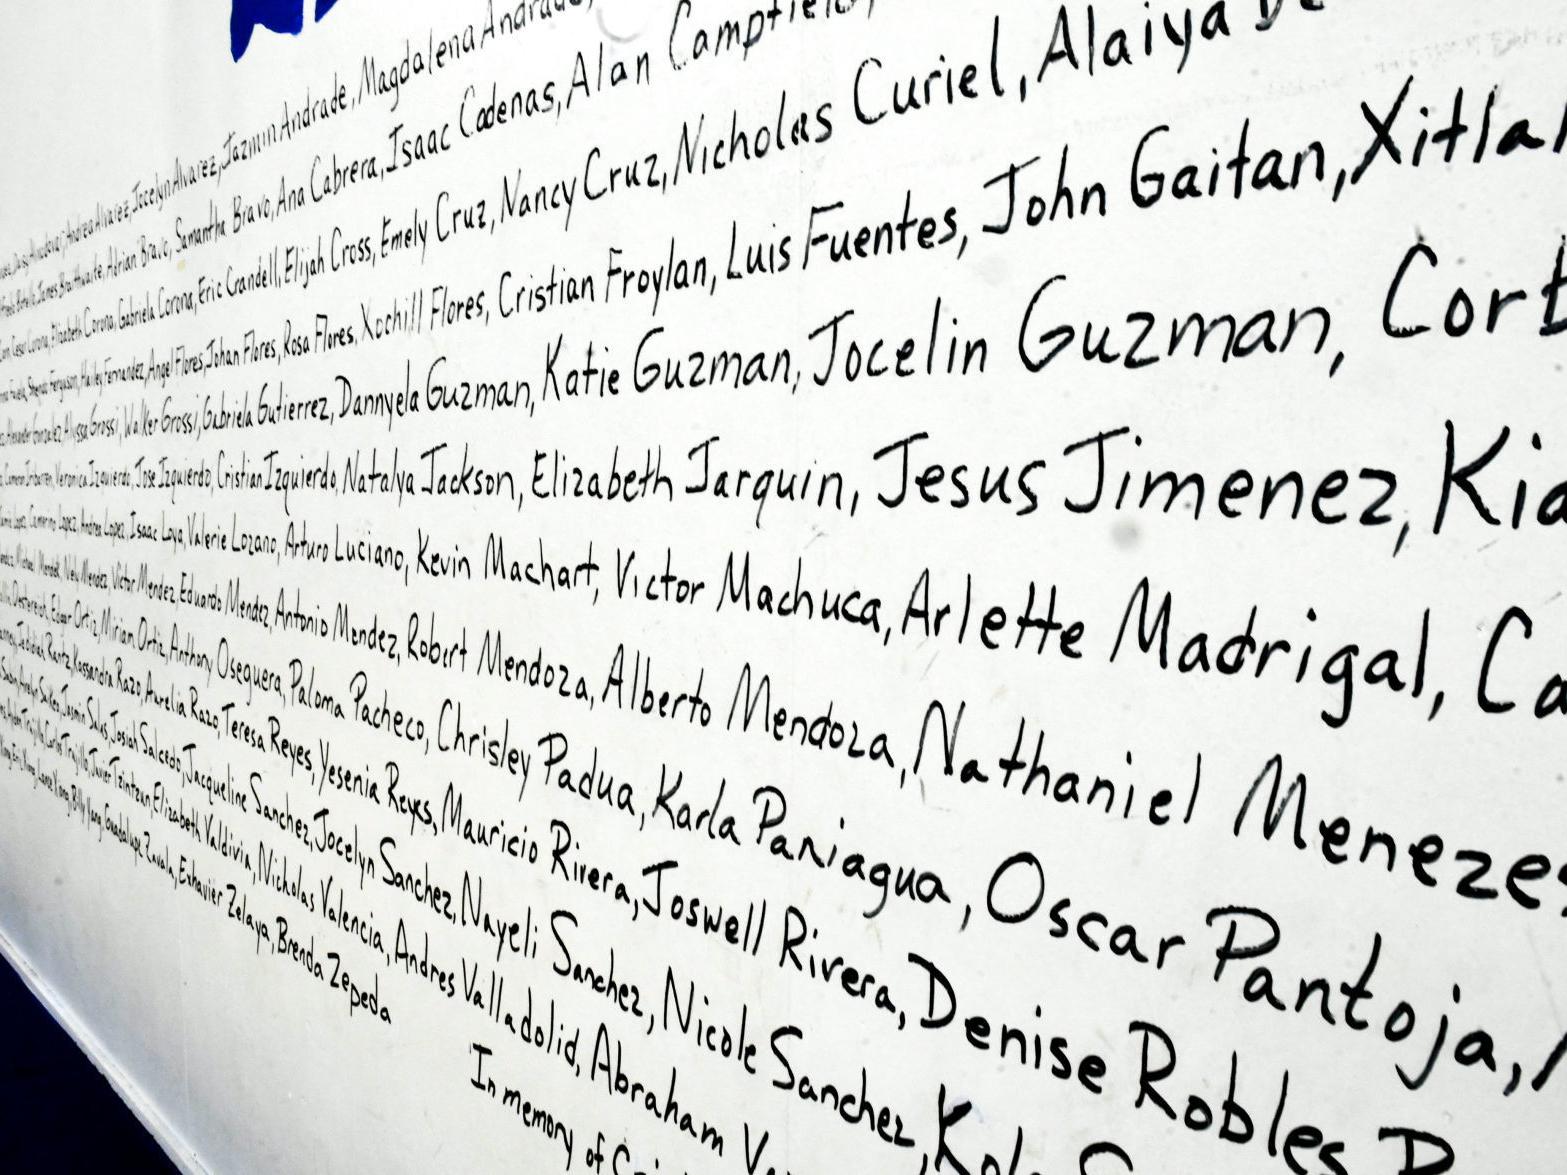 Andrea Alvarez, Jocelyn Alvarez, Jazmin Andrade, Magdalena Andrade,
James Braithwaite, Adrian Bravo, Samantha Bravo, Ana Cabrera, Isaac Cadenas, Alan Campfield,
Cesar Corona, Elizabeth Corona, Gabriela Corona, Eric Crandell, Elijah Cross, Emely Cruz, Nancy Cruz, Nicholas Curiel, Alaiya De
Ferguson, Hailey Fernandez, Angel Flores, Johan Flores, Rosa Flores, Xochill Flores, Cristian Froylan, Luis Fuentes, John Gaitan, Xitlal
Alexander Gonzalez, Alyssa Grossi, Walker Grossi, Gabriela Gutierrez, Dannyela Guzman, Katie Guzman, Jocelin Guzman, Cort
Cameron Iribarren, Veronica Izquierdo, Jose Izquierdo, Cristian Izquierdo, Natalya Jackson, Elizabeth Jarquin, Jesus Jimenez, Kia
Lopez, Camerino Lopez, Andrea Lopez, Isaac Loya, Valerie Lozano, Arturo Luciano, Kevin Machart, Victor Machuca, Arlette Madrigal, Ca
Michael Mendell, Nely Mendez, Victor Mendez, Eduardo Mendez, Antonio Mendez, Robert Mendoza, Alberto Mendoza, Nathaniel Menezes
Oestereich, Edgar Ortiz, Miriam Ortiz, Anthony Oseguera, Paloma Pacheco, Chrisley Padua, Karla Paniagua, Oscar Pantoja,
Jedidiah Rantz, Kassandra Razo, Aurelia Razo, Teresa Reyes, Yesenia Reyes, Mauricio Rivera, Joswell Rivera, Denise Robles
Jasmin Salas, Josiah Salcedo, Jacqueline Sanchez, Jocelyn Sanchez, Nayeli Sanchez, Nicole Sanchez,
Adan Trujillo, Carlos Trujillo, Javier Tzintzun, Elizabeth Valdivia, Nicholas Valencia, Andres Valladolid, Abraham
Billy Yang, Guadalupe Zavala, Exhavier Zelaya, Brenda Zepeda
In memory of